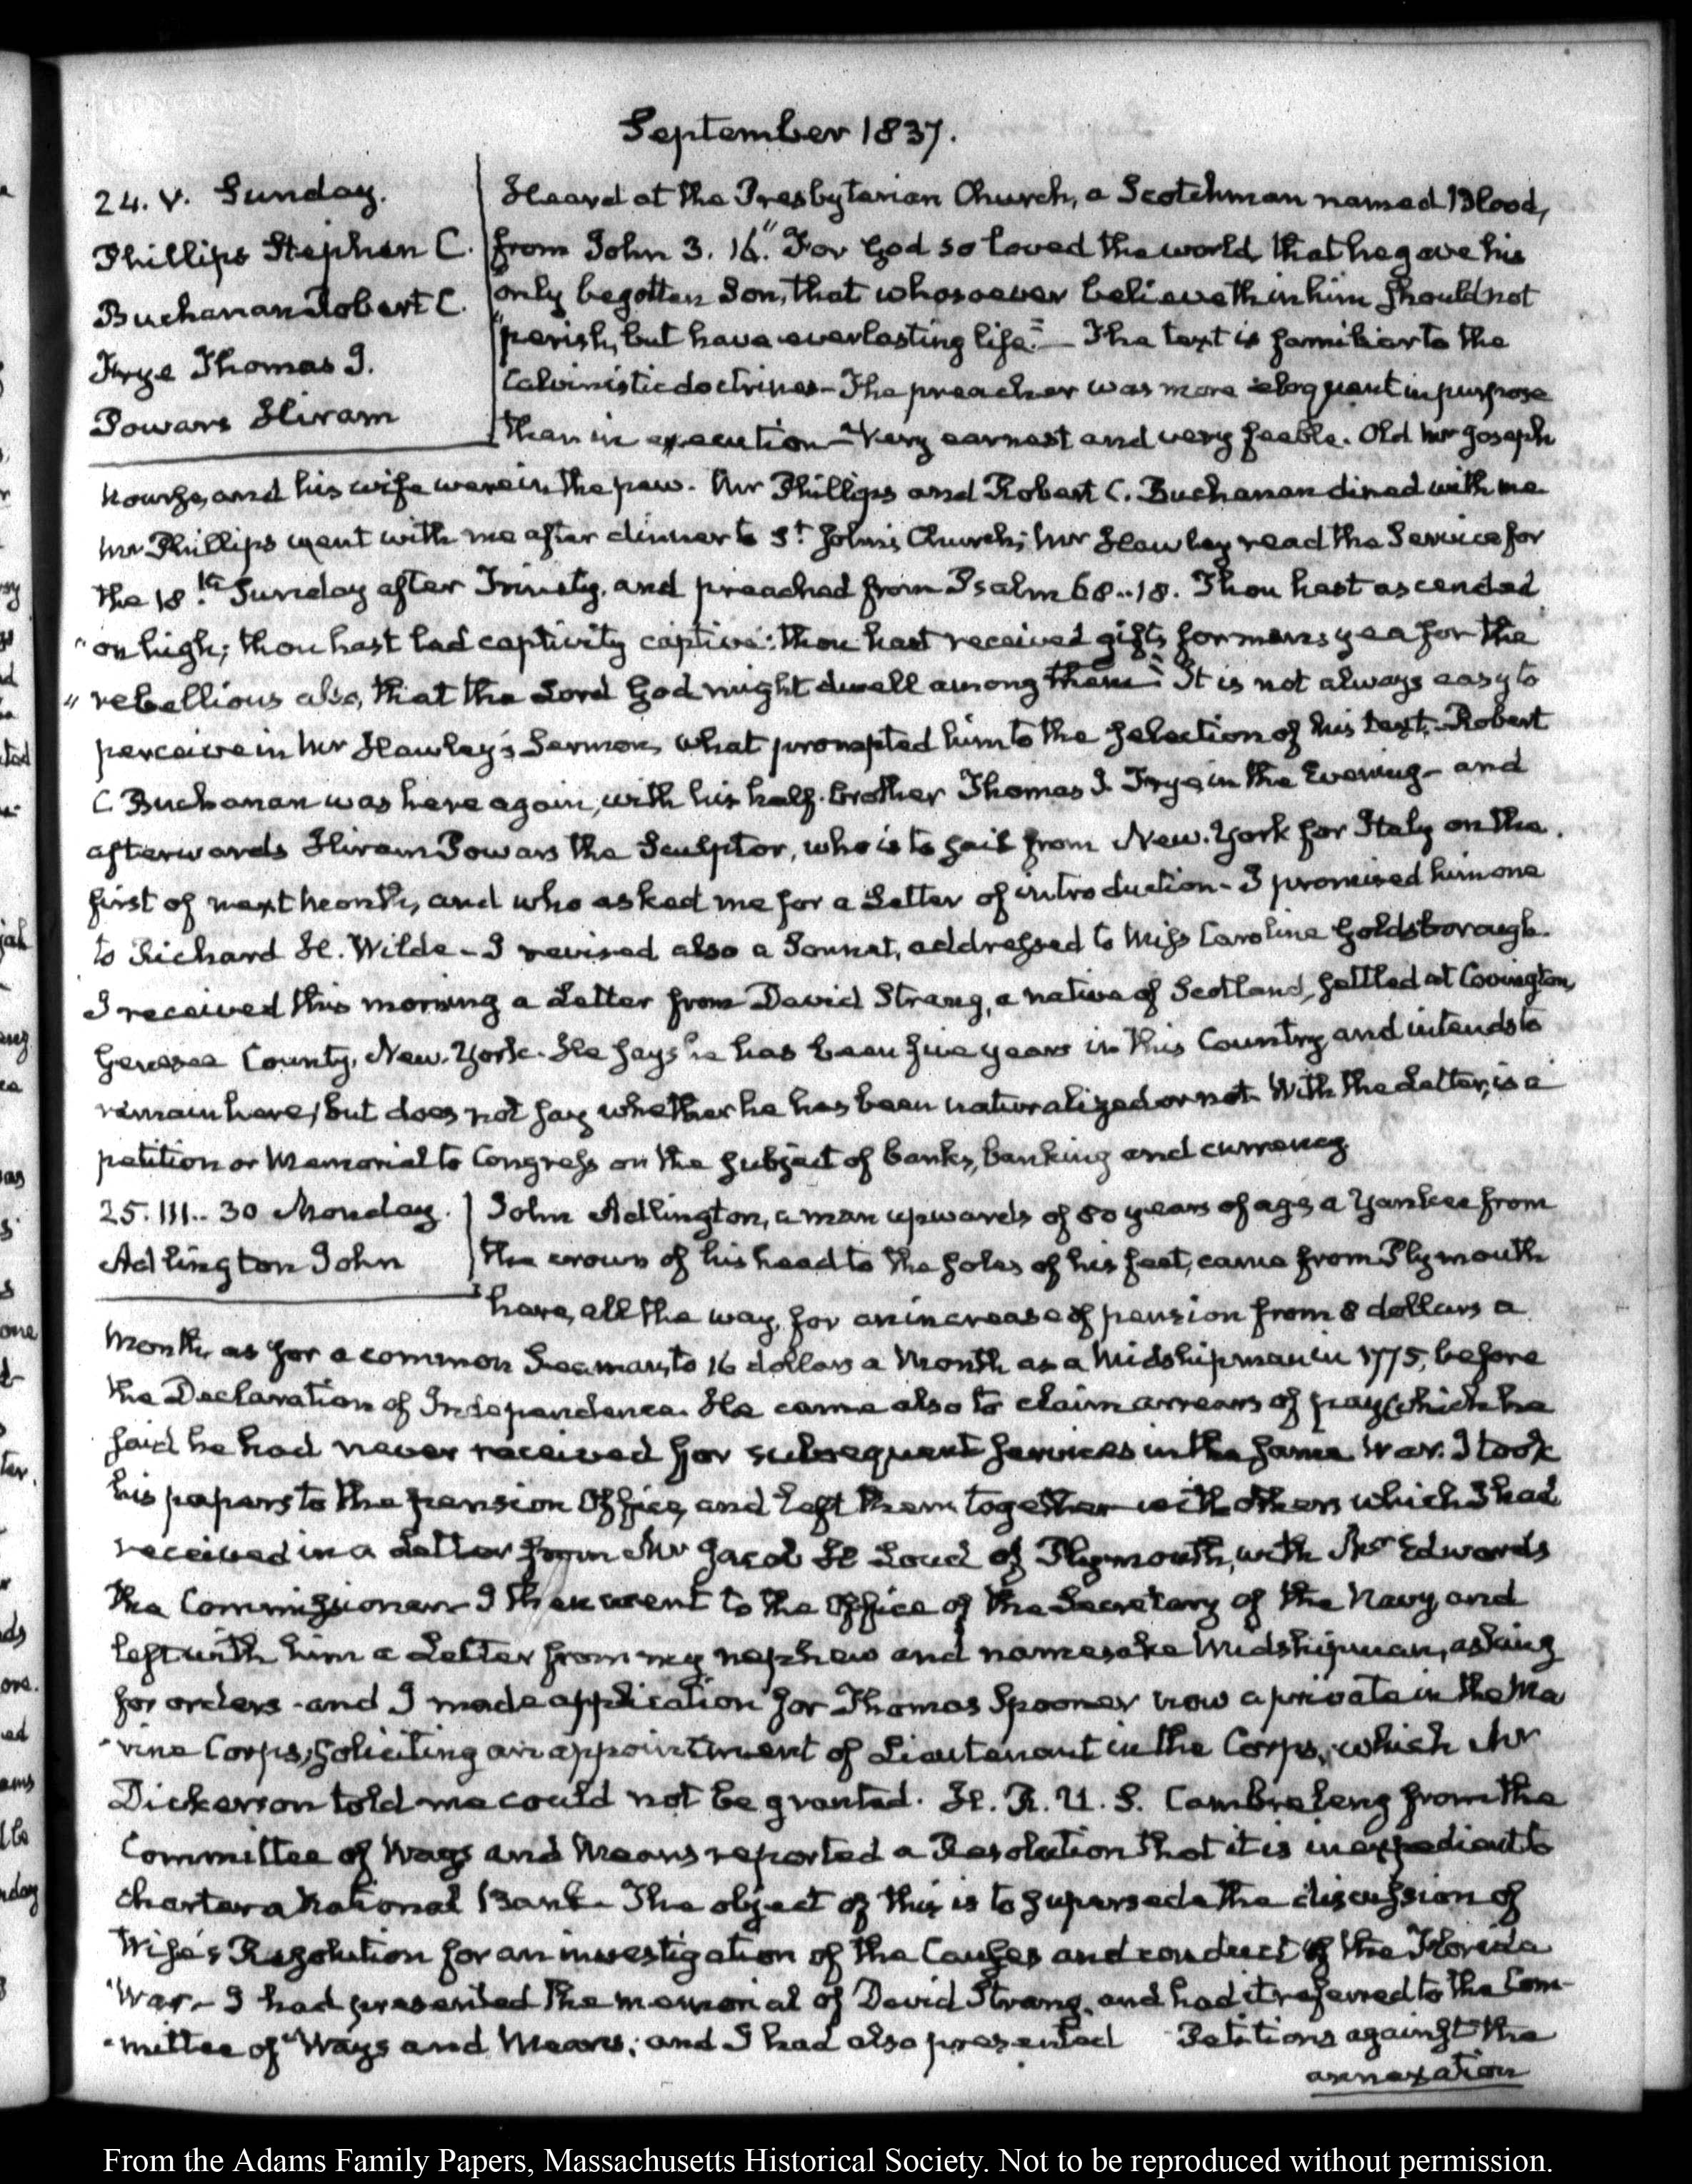 September 1837.
24. V. Sunday.
Phillips Stephen C.
Buchanan Robert C.
Frye Thomas J.
Powers Hiram
Heard at the Presbyterian Church, a Scotchman named Blood,
from John 3. 16. "For God so loved the world, that he gave his
"only begotten Son, that whosoever believeth in him should not
"perish, but have everlasting life." — The text is familiar to the
Calvinistic doctrines — The preacher was more eloquent in purpose
than in execution — Very earnest and very feeble. Old Mr Joseph
Nourse, and his wife were in the pew. Mr Phillips and Robert C. Buchanan dined with me
Mr Phillips went with me after dinner to St. John's Church; Mr Hawley read the Service for
the 18th Sunday after Trinity, and preached from Psalm 68..18. Thou hast ascended
"on high; thou hast led captivity captive: thou hast received gifts for men; yea for the
"rebellious also, that the Lord God might dwell among them." It is not always easy to
perceive in Mr Hawley's Sermon, what prompted him to the selection of his text. Robert
C Buchanan was here again, with his half-brother Thomas J. Frye in the Evening — and
afterwards Hiram Powers the Sculptor, who is to sail from New-York for Italy on the
first of next month, and who asked me for a Letter of introduction — I promised him one
to Richard H. Wilde — I revised also a Sonnet, addressed to Miss Caroline Goldsborough.
I received this morning a Letter from David Strang, a native of Scotland, settled at Covington,
Genesee County, New-York. He says he has been five years in this Country, and intends to
remain here, but does not say whether he has been naturalized or not. With the Letter, is a
petition or Memorial to Congress on the subject of banks, banking and currency
25. III.. 30 Monday.
Adlington John
John Adlington, a man upwards of 80 years of age, a Yankee from
the crown of his head to the soles of his feet, came from Plymouth
here, all the way, for an increase of pension from 8 dollars a
Month, as for a common Seaman, to 16 dollars a Month as a Midshipman in 1775, before
the Declaration of Independence. He came also to claim arrears of pay which he
said he had never received for subsequent services in the same War. I took
his papers to the Pension Office, and left them together with others which I had
received in a Letter from Mr Jacob H Loud of Plymouth, with Mr Edwards
the Commissioner — I then went to the Office of the Secretary of the Navy, and
left with him a Letter from my nephew and namesake Midshipman, asking
for orders — and I made application for Thomas Spooner now a private in the Ma
-rine Corps, soliciting an appointment of Lieutenant in the Corps, which Mr
Dickerson told me could not be granted. H. R. U. S. Cambreleng from the
Committee of Ways and Means reported a Resolution that it is inexpedient to
charter a National Bank — The object of this is to supersede the discussion of
Wise's Resolution for an investigation of the Causes and conduct of the Florida
War — I had presented the memorial of David Strang, and had it referred to the Com-
-mittee of Ways and Means; and I had also presented Petitions against the
annexation
From the Adams Family Papers, Massachusetts Historical Society. Not to be reproduced without permission.